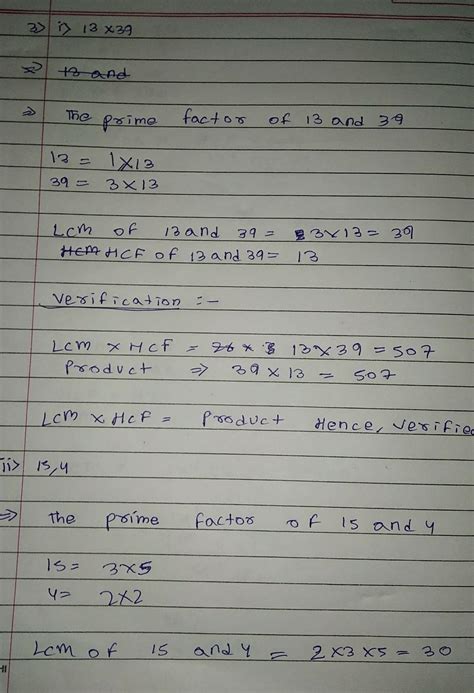 3> i) 13 x 39
=> 13 and
=> The prime factor of 13 and 39
13 = 1x13
39 = 3x13
Lcm of 13 and 39 = 3x13 = 39
HCM HCF of 13 and 39 = 13
Verification :-
Lcm x Hcf = 26 x 3 13 x 39 = 507
Product => 39 x 13 = 507
Lcm x Hcf = Product Hence, verified
ii> 15,4
=> the prime factor of 15 and 4
15 = 3x5
4 = 2x2
Lcm of 15 and 4 = 2x3x5 = 30